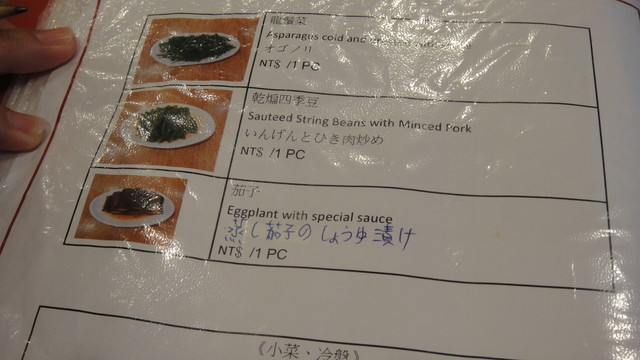 龍鬚菜
Asparagus cold and
オゴノリ
NT$ /1 PC
乾煸四季豆
Sauteed String Beans with Minced Pork
いんげんとひき肉炒め
NT$ /1 PC
茄子
Eggplant with special sauce
蒸し茄子のしょうゆ漬け
NT$ /1 PC
《小菜・冷盤》